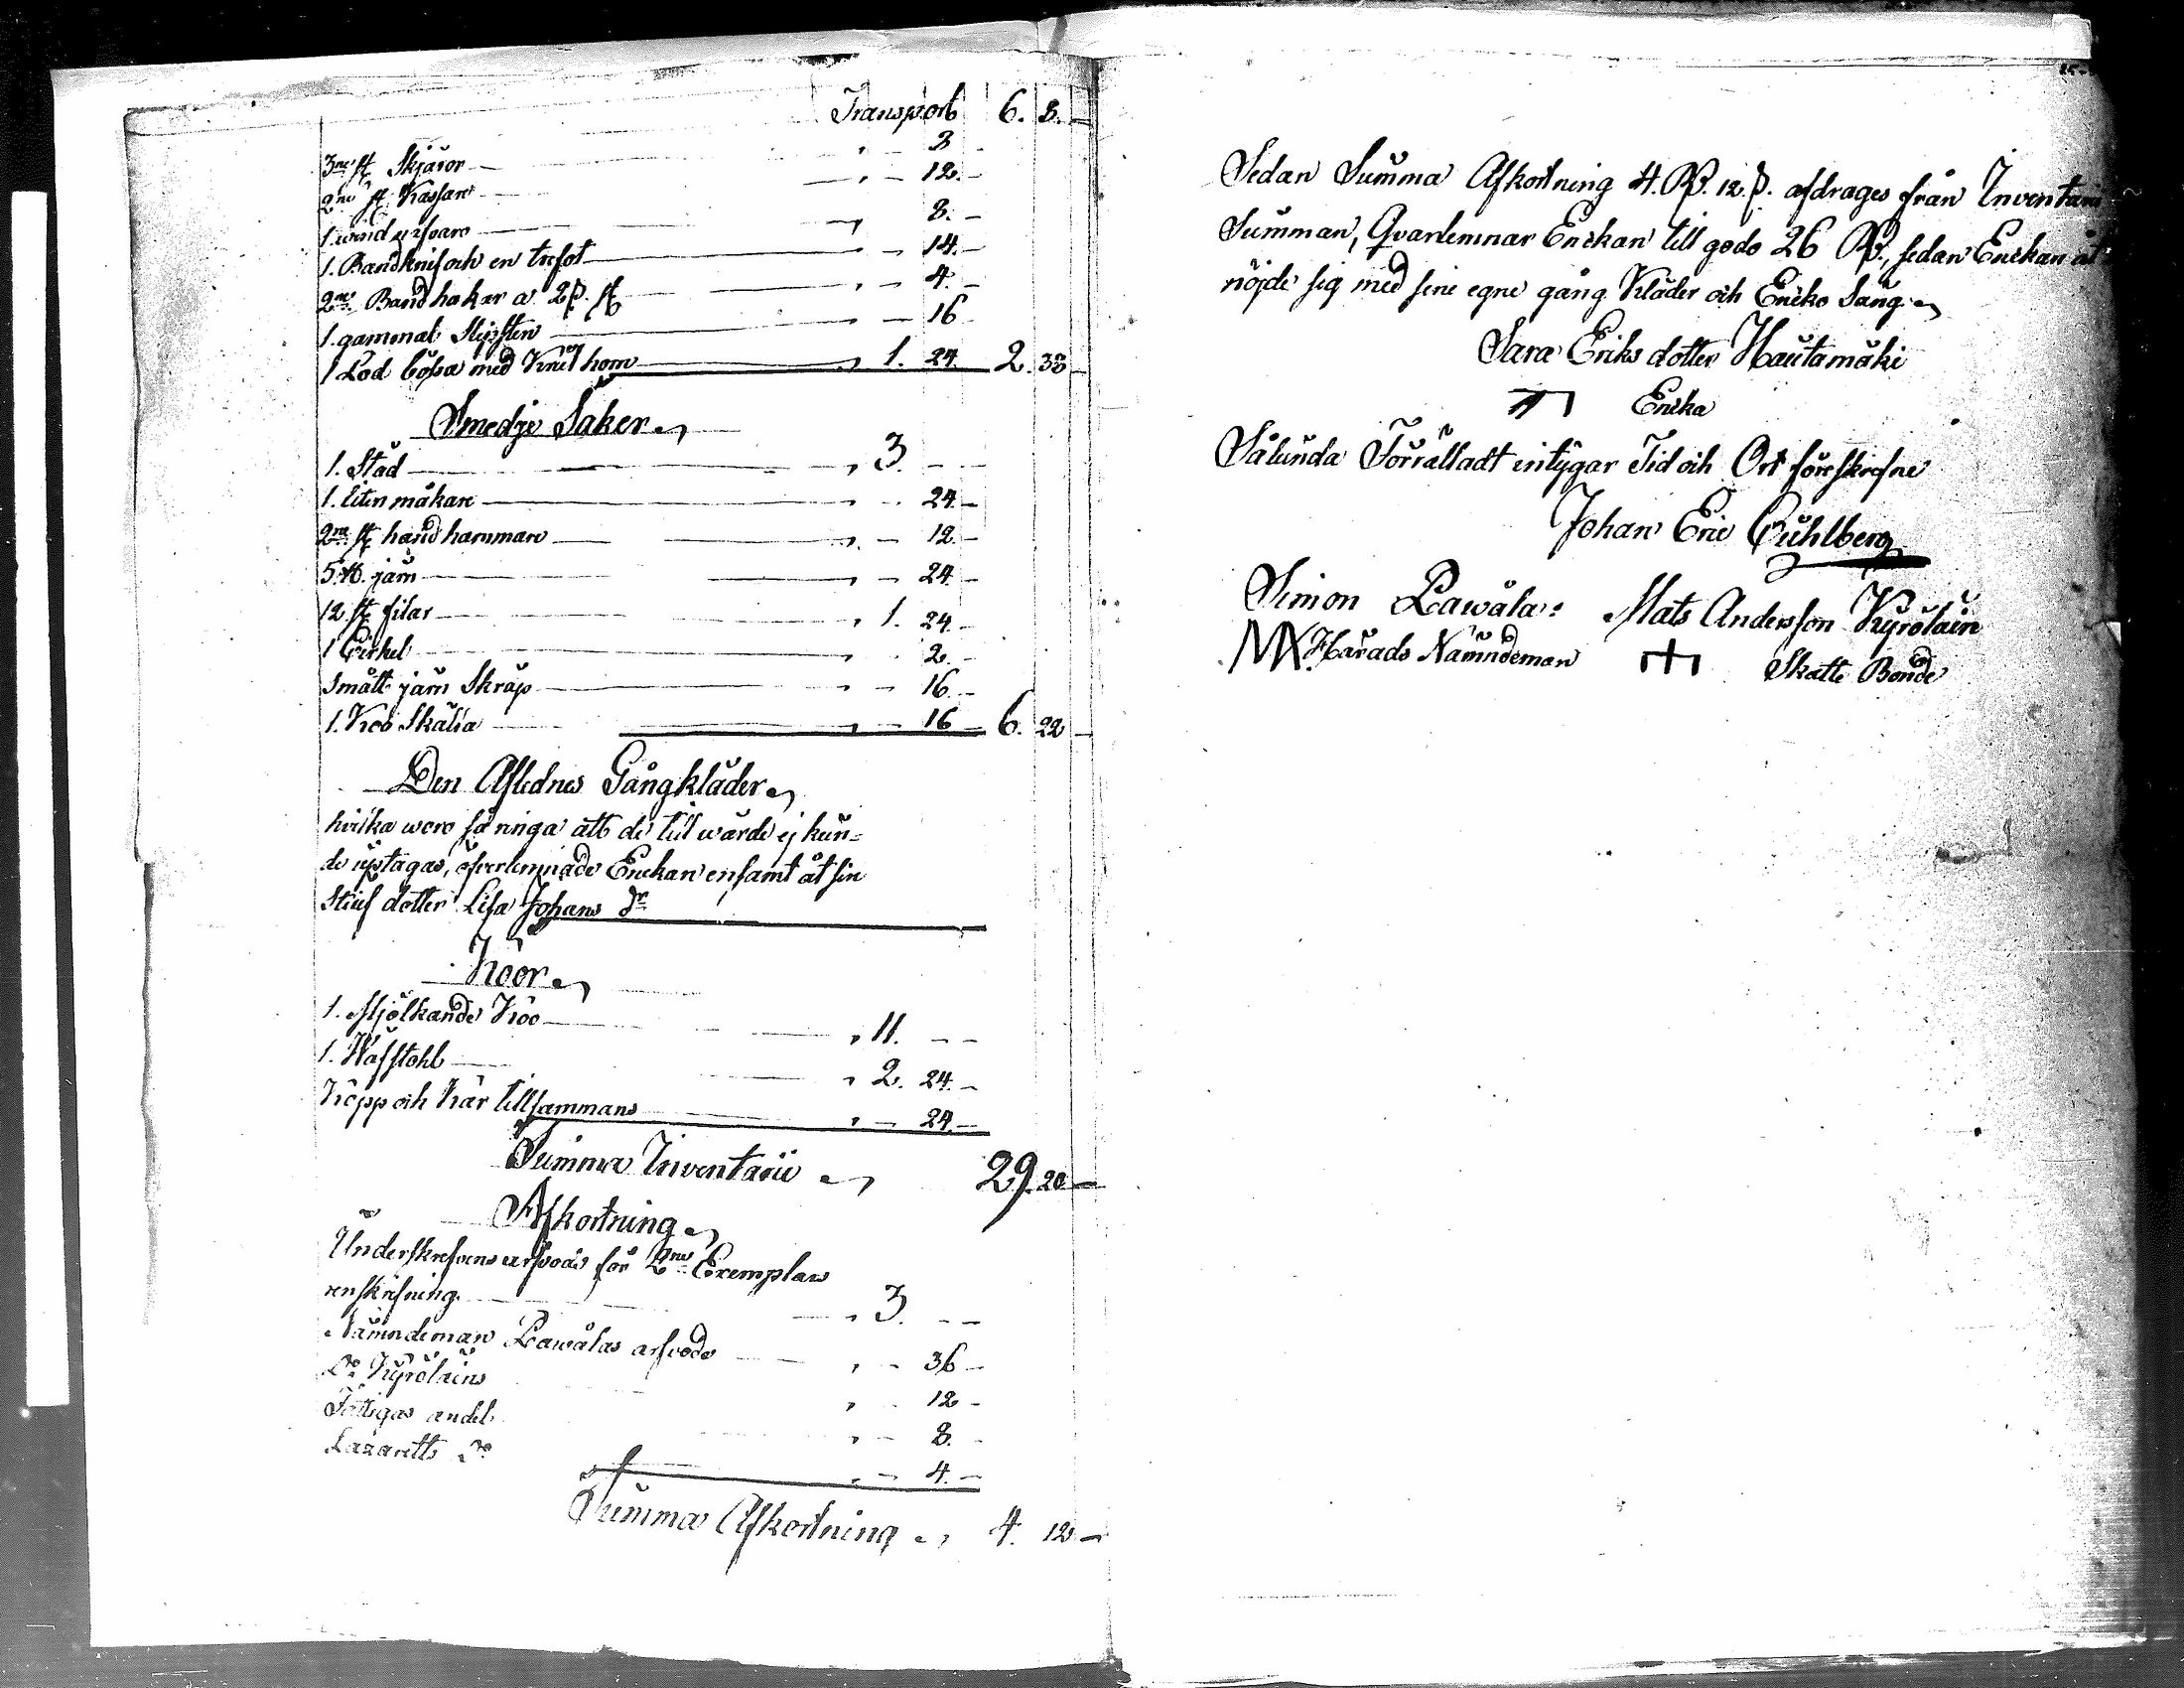 Transport 6. 8. -
3ne st Skjäror - 3 -
2ne st Kassare - 12. -
1. wind urfvare - 8. -
1. Bandknif och en trefot - 14. -
2ne Band hakar a 2 s. st - 4. -
1. gammal Slipsten - 16
1 Lod bössa med Krut horn 1. 24. 2. 33 -
Smedje Saker
1. Städ 3. - -
1. liten måkare - 24. -
2ne st hand hammare - 12. -
5 ℔. järn - 24. -
12 st filar 1. 24. -
1 Cirkel - 2. -
Smått järn Skräp - 16. -
1. Koo Skälla - 16 - 6. 22 -
Den Aflednes Gångkläder
hvilka woro så ringa att de till wärde ej kun=
de uptagas, öfverlemnade Enckan ensamt åt sin
Stiuf dotter Lisa Johans dr
Koor
1. Mjölkande Koo 11. - -
1. Wäfstohl 2. 24. -
Kopp och Kar tillsammans - 24. -
Summa Inventarii 29. 20 -
Afkortning
Underskrefvens arfvode för 2ne Exemplars
renskrifning 3. - -
Nämndeman Lawalas arfvode - 36 -
Do Kyröläins - 12 -
Fattigas andel - 8. -
Lazaretts Do - 4. -
Summa Afkortning 4. 12 -
Sedan Summa Afkortning 4. R. 12. s. afdrages från Inventarii
Summan, Qvarlemnar Enckan till godo 26 R., sedan Enckan åt
nöjde sig med sine egne gång Kläder och Encke Säng
Sara Eriks dotter Hautamäki
Encka
Sålunda Förrättadt intygar Tid och Ort föreskrefne
Johan Eric Cuhlberg
Simon Lawala: Mats Andersson Kyröläin
Härads Nämndeman Skatte Bonde